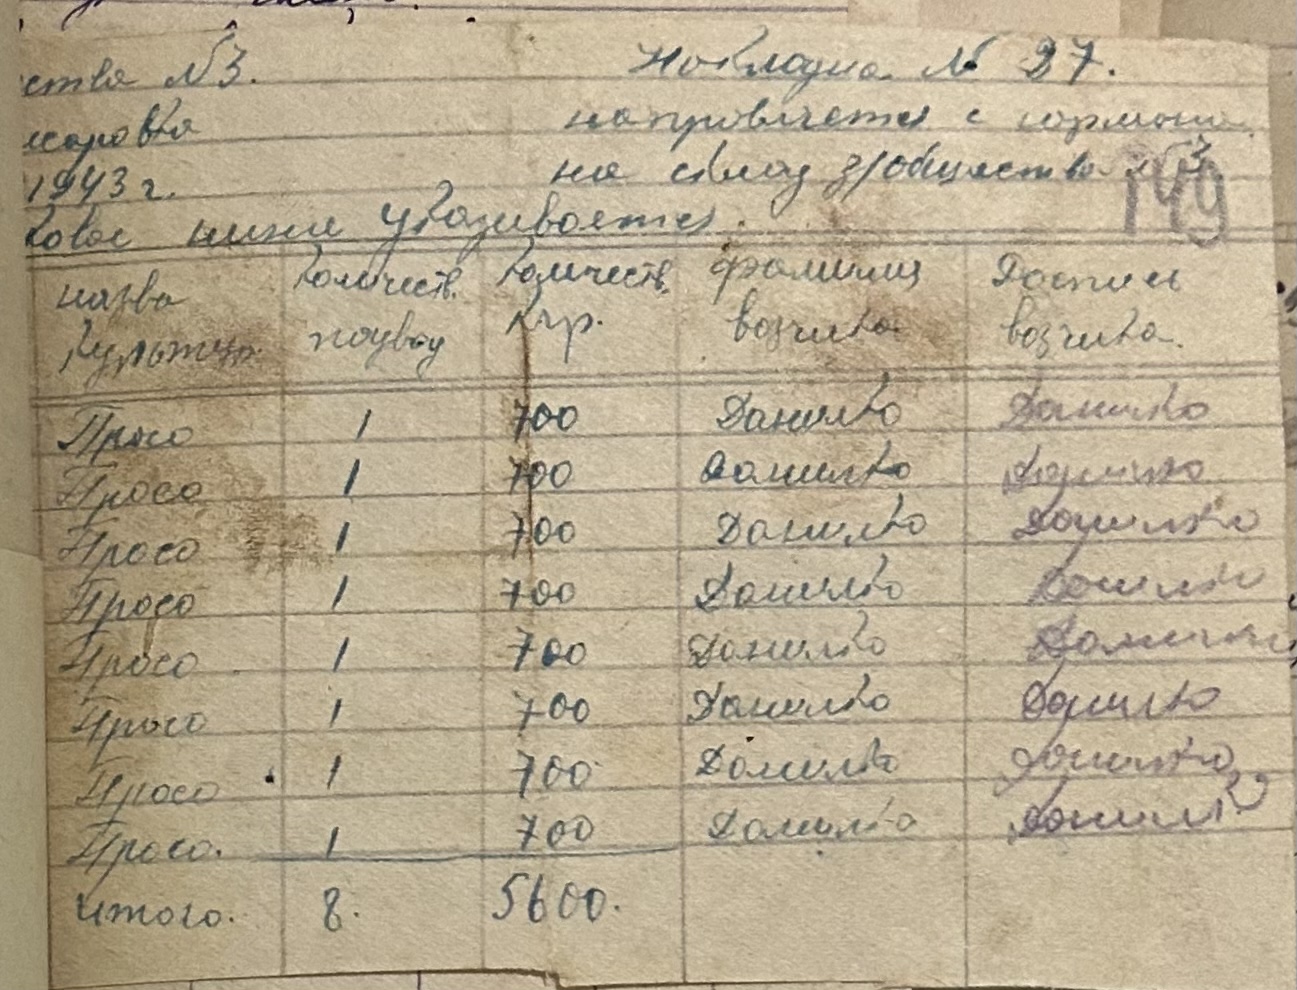 ства №3. Накладна № 27.
направляется с гармана
1943 г. на склад з/общества №3
149
ниже указывается.
назва культур количеств. подвод количеств. кгр. фамилия возчика роспись возчика.
Просо 1 700 Данилко Данилко
Просо 1 700 Данилко Данилко
Просо 1 700 Данилко Данилко
Просо 1 700 Данилко Данилко
Просо 1 700 Данилко Данилко
Просо 1 700 Данилко Данилко
Просо 1 700 Данилко Данилко
Просо. 1 700 Данилко Данилко
итого. 8. 5600.